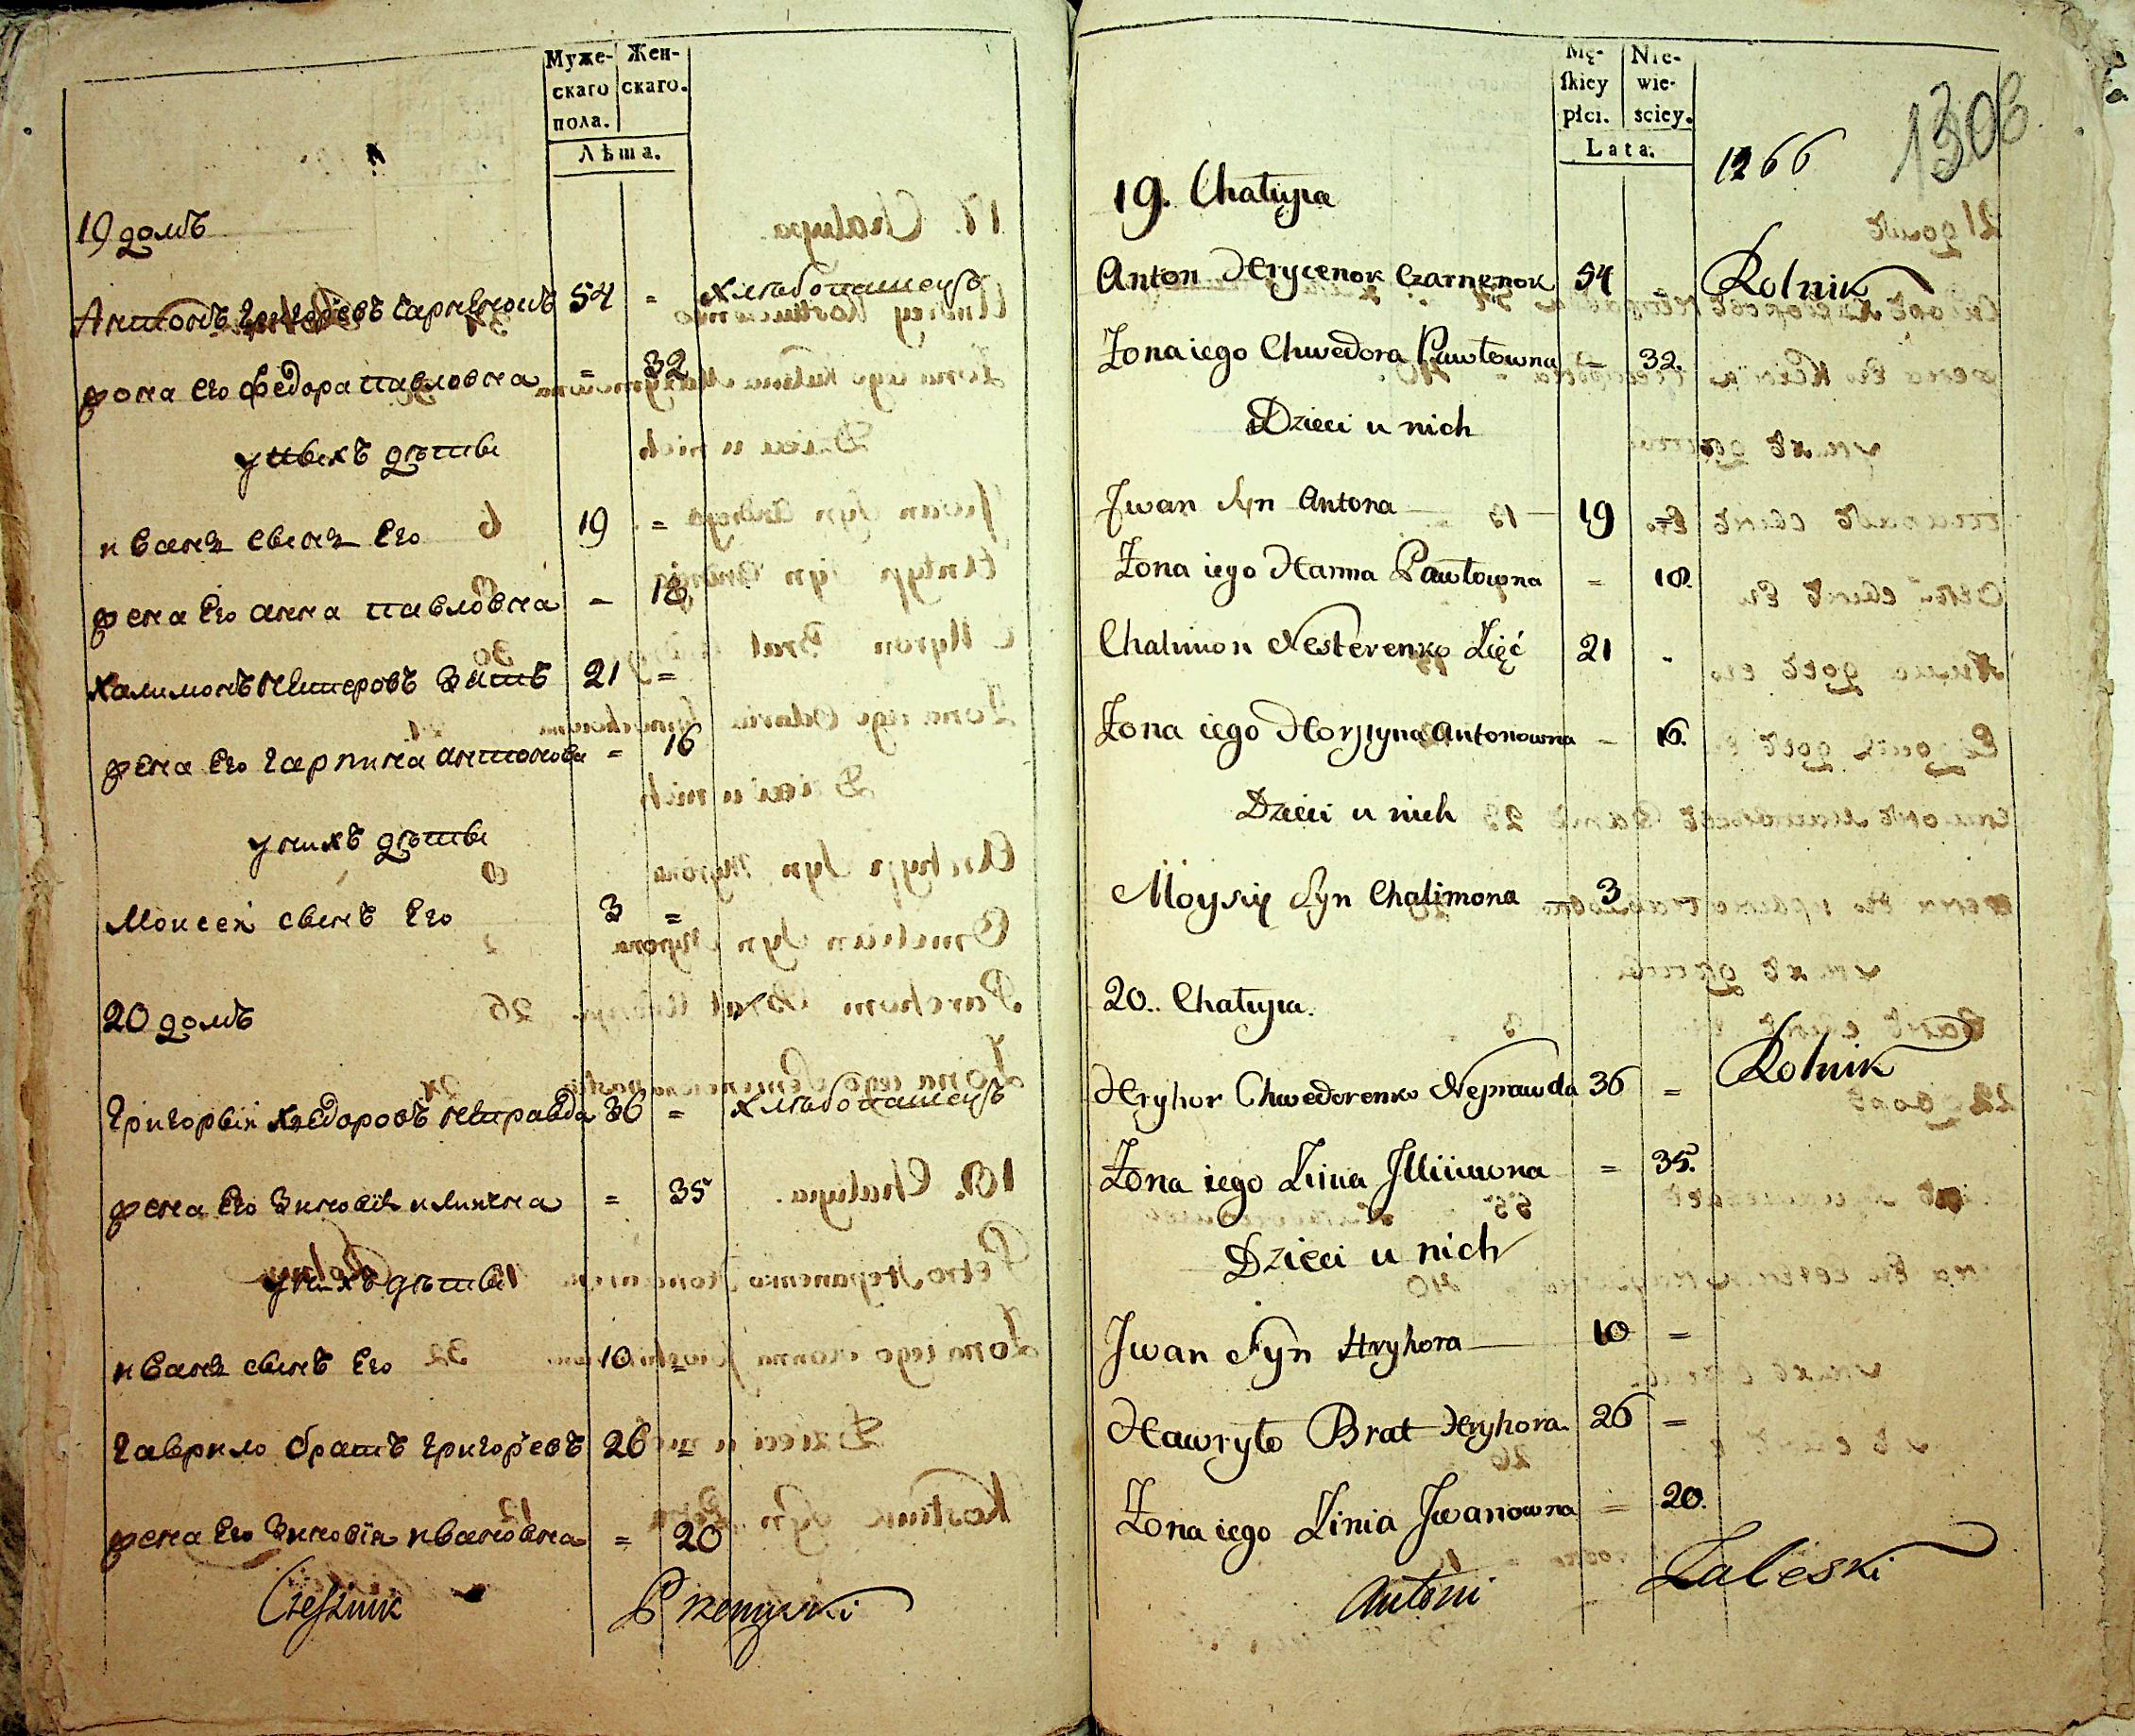 Муже-
скаго
пола.
Жен-
скаго.
Лѣта.
19 домъ
Антонъ Григорьевъ 54 = хлѣбопашецъ
жена Его федора павловна = 32
у нихъ дѣти
иванъ сынъ Его 19 =
жена Его анна павловна = 18
халимонъ нестеровъ зять 21 =
жена Его гарпина антонова = 16
у нихъ дѣти
Моисей сынъ Его 3 =
20 домъ
Григорый хведоровъ неправда 36 = хлѣбопашецъ
жена Его зиновія = 35
у нихъ дѣти
иванъ сынъ Его 10 =
гаврило братъ григорьевъ 26 =
жена Его зиновія ивановна = 20
Mę-
skiey
płci.
Nie-
wie-
ściey.
Lata.
1266
1308
19. Chałupa
Anton Hrycenok Czarnenok 54 - Rolnik
Żona iego Chwedora Pawłowna = 32.
Dzieci u nich
Jwan Syn Antona 19 =
Żona iego Hanna Pawłowna = 18.
Chalimon Nesterenko Zięć 21 -
Żona iego Horpyna Antonowna - 16.
Dzieci u nich
Moysiy Syn Chalimona 3
20. Chałupa.
Hryhor Chwedorenko Neprawda 36 = Rolnik
Żona iego Zinia = 35.
Dzieci u nich
Jwan Syn Hryhora 10 =
Hawryło Brat Hryhora 26 =
Żona iego Zinia Jwanowna = 20.
Antoni Zaleski